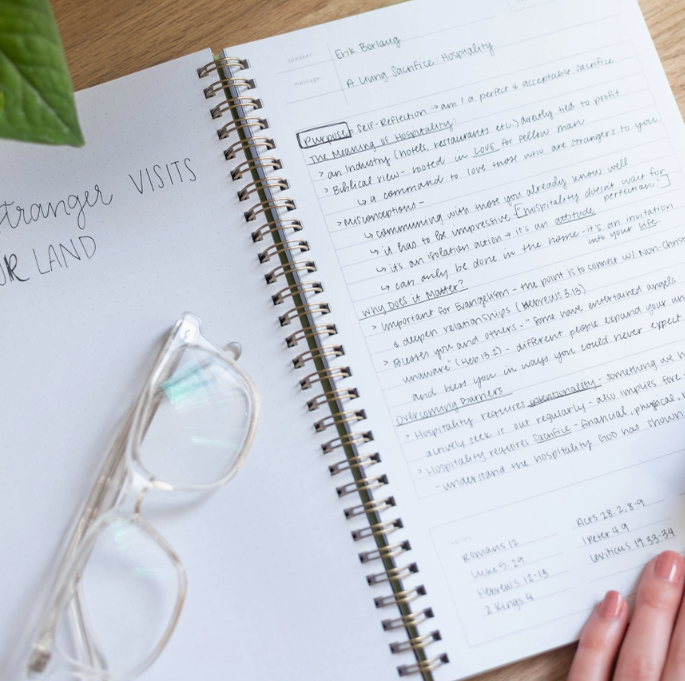 stranger VISITS
UR LAND
speaker: Erik Borlaug
message A Living Sacrifice: Hospitality
Purpose: Self-Reflection → am I a perfect & acceptable sacrifice
The Meaning of Hospitality:
> an Industry (hotels, restaurants etc.) directly tied to profit
> Biblical view - rooted in LOVE for fellow man
↳ a command to love those who are strangers to you
> Misconceptions -
↳ communing with those you already know well
↳ it has to be impressive [hospitality doesn't wait for perfection"]
↳ it's an isolation action → it's an attitude
↳ can only be done in the home - it's an invitation into your life
Why Does it Matter?
> Important for Evangelism - the point is to connect w/ Non-Christ
& deepen relationships (Hebrews 3:13)
> Blesses you and others - "Some have entertained angels
unaware" (Heb 13:2) - different people expand your un
and bless you in ways you could never expect
Overcoming Barriers
> Hospitality requires intentionality - something we h
actively seek it out regularly - also implies fore
> Hospitality requires sacrifice - financial, physical,
- understand the hospitality God has shown
Romans 12
Luke 5:29
Hebrews 12-13
2 Kings 4
Acts 28:2, 8-9
1 Peter 4:9
Leviticus 19:33-34